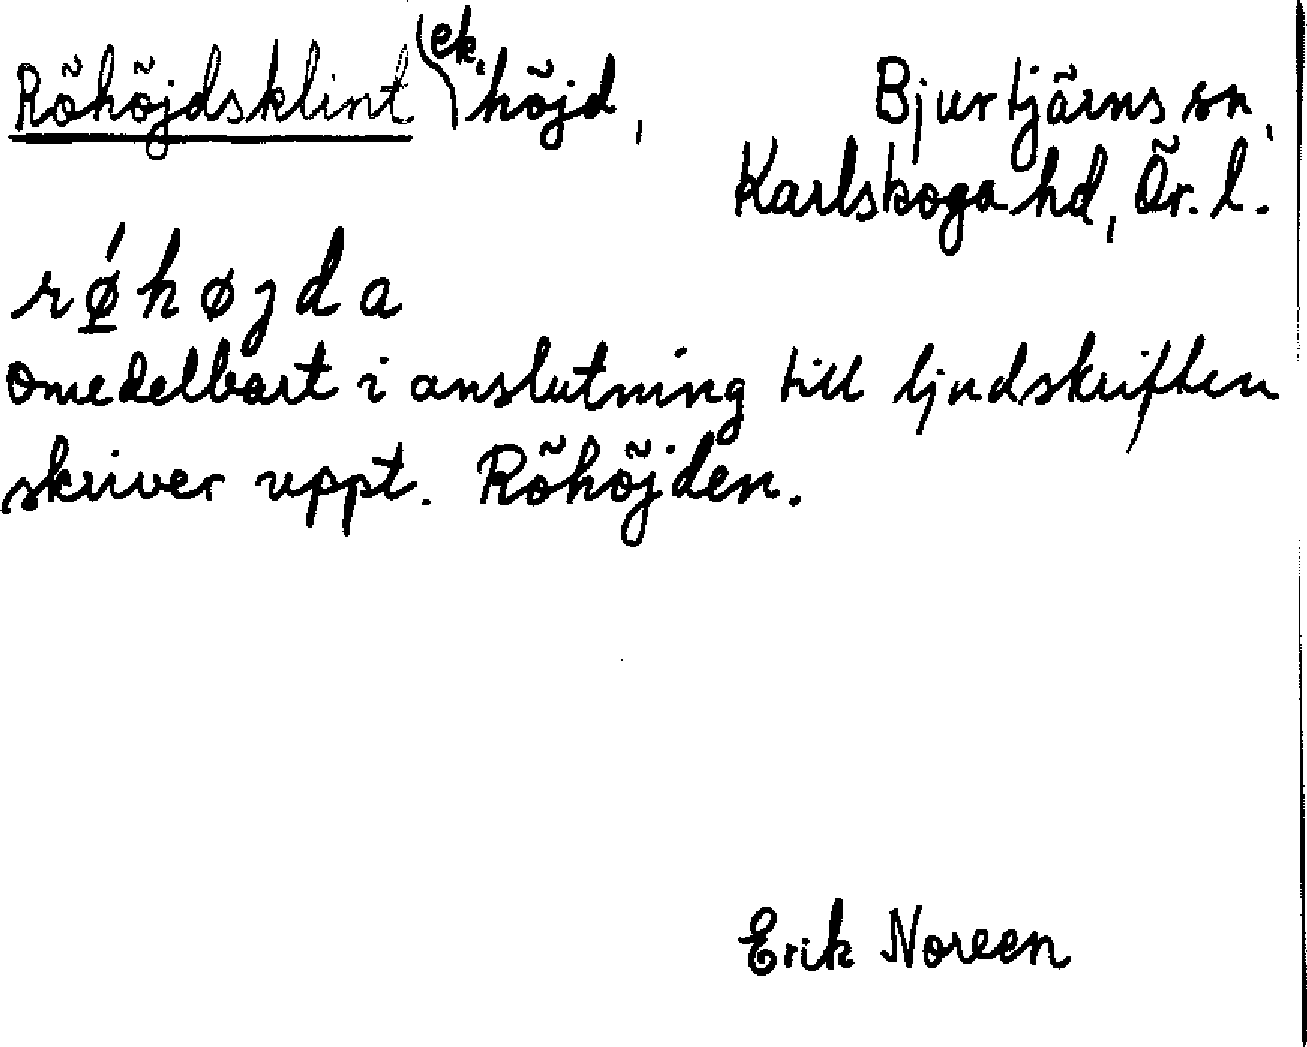 Röhöjdsklint ek. höjd, Bjurtjärns sn,
Karlskoga hd, Ör. l.
rǿ̲højda
omedelbart i anslutning till ljudskriften
skriver uppt. Röhöjden.
Erik Noreen